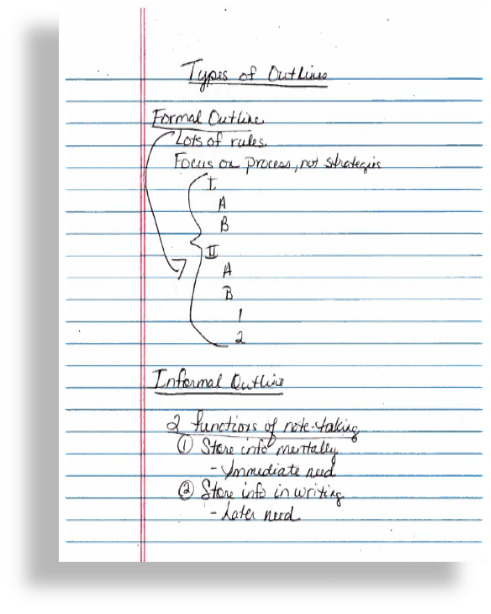 Types of Outlines
Formal Outline
Lots of rules
Focus on process, not strategies
I
A
B
II
A
B
1
2
Informal Outline
2 functions of note-taking
① Store info mentally
- Immediate need
② Store info in writing
- Later need